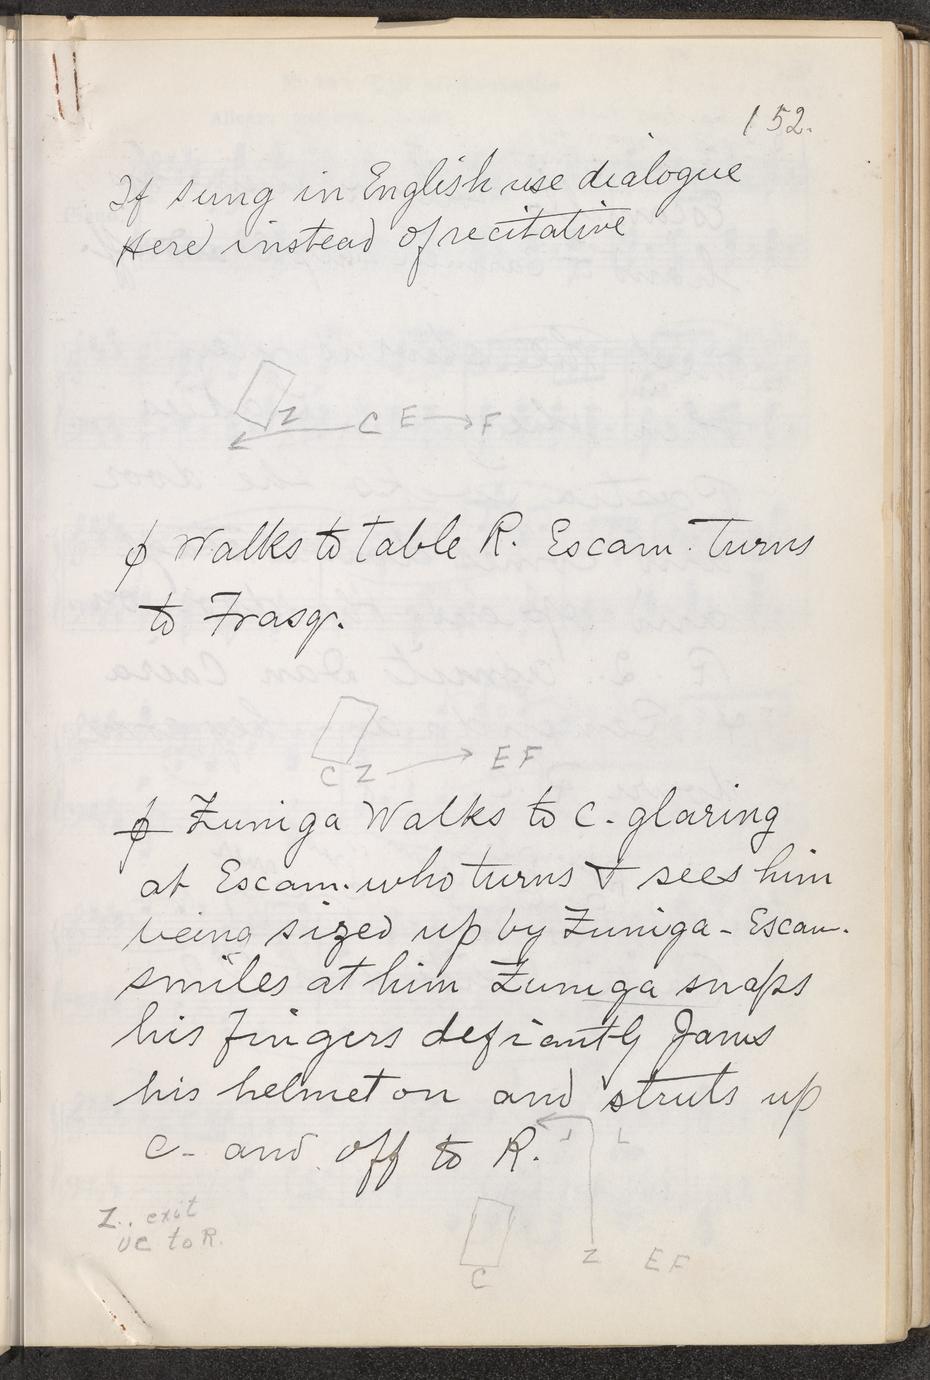 152.
If sung in English use dialogue
Here instead of recitative
Z C E F
ϕ Walks to table R. Escam. turns
to Frasq.
C Z E F
ϕ Zuniga Walks to C. glaring
at Escam. who turns & sees him
being sized up by Zuniga - Escam.
smiles at him Zuniga snaps
his fingers defiantly Jams
his helmet on and struts up
C - and off to R.
Z.. exit
UC to R.
Z E F
C